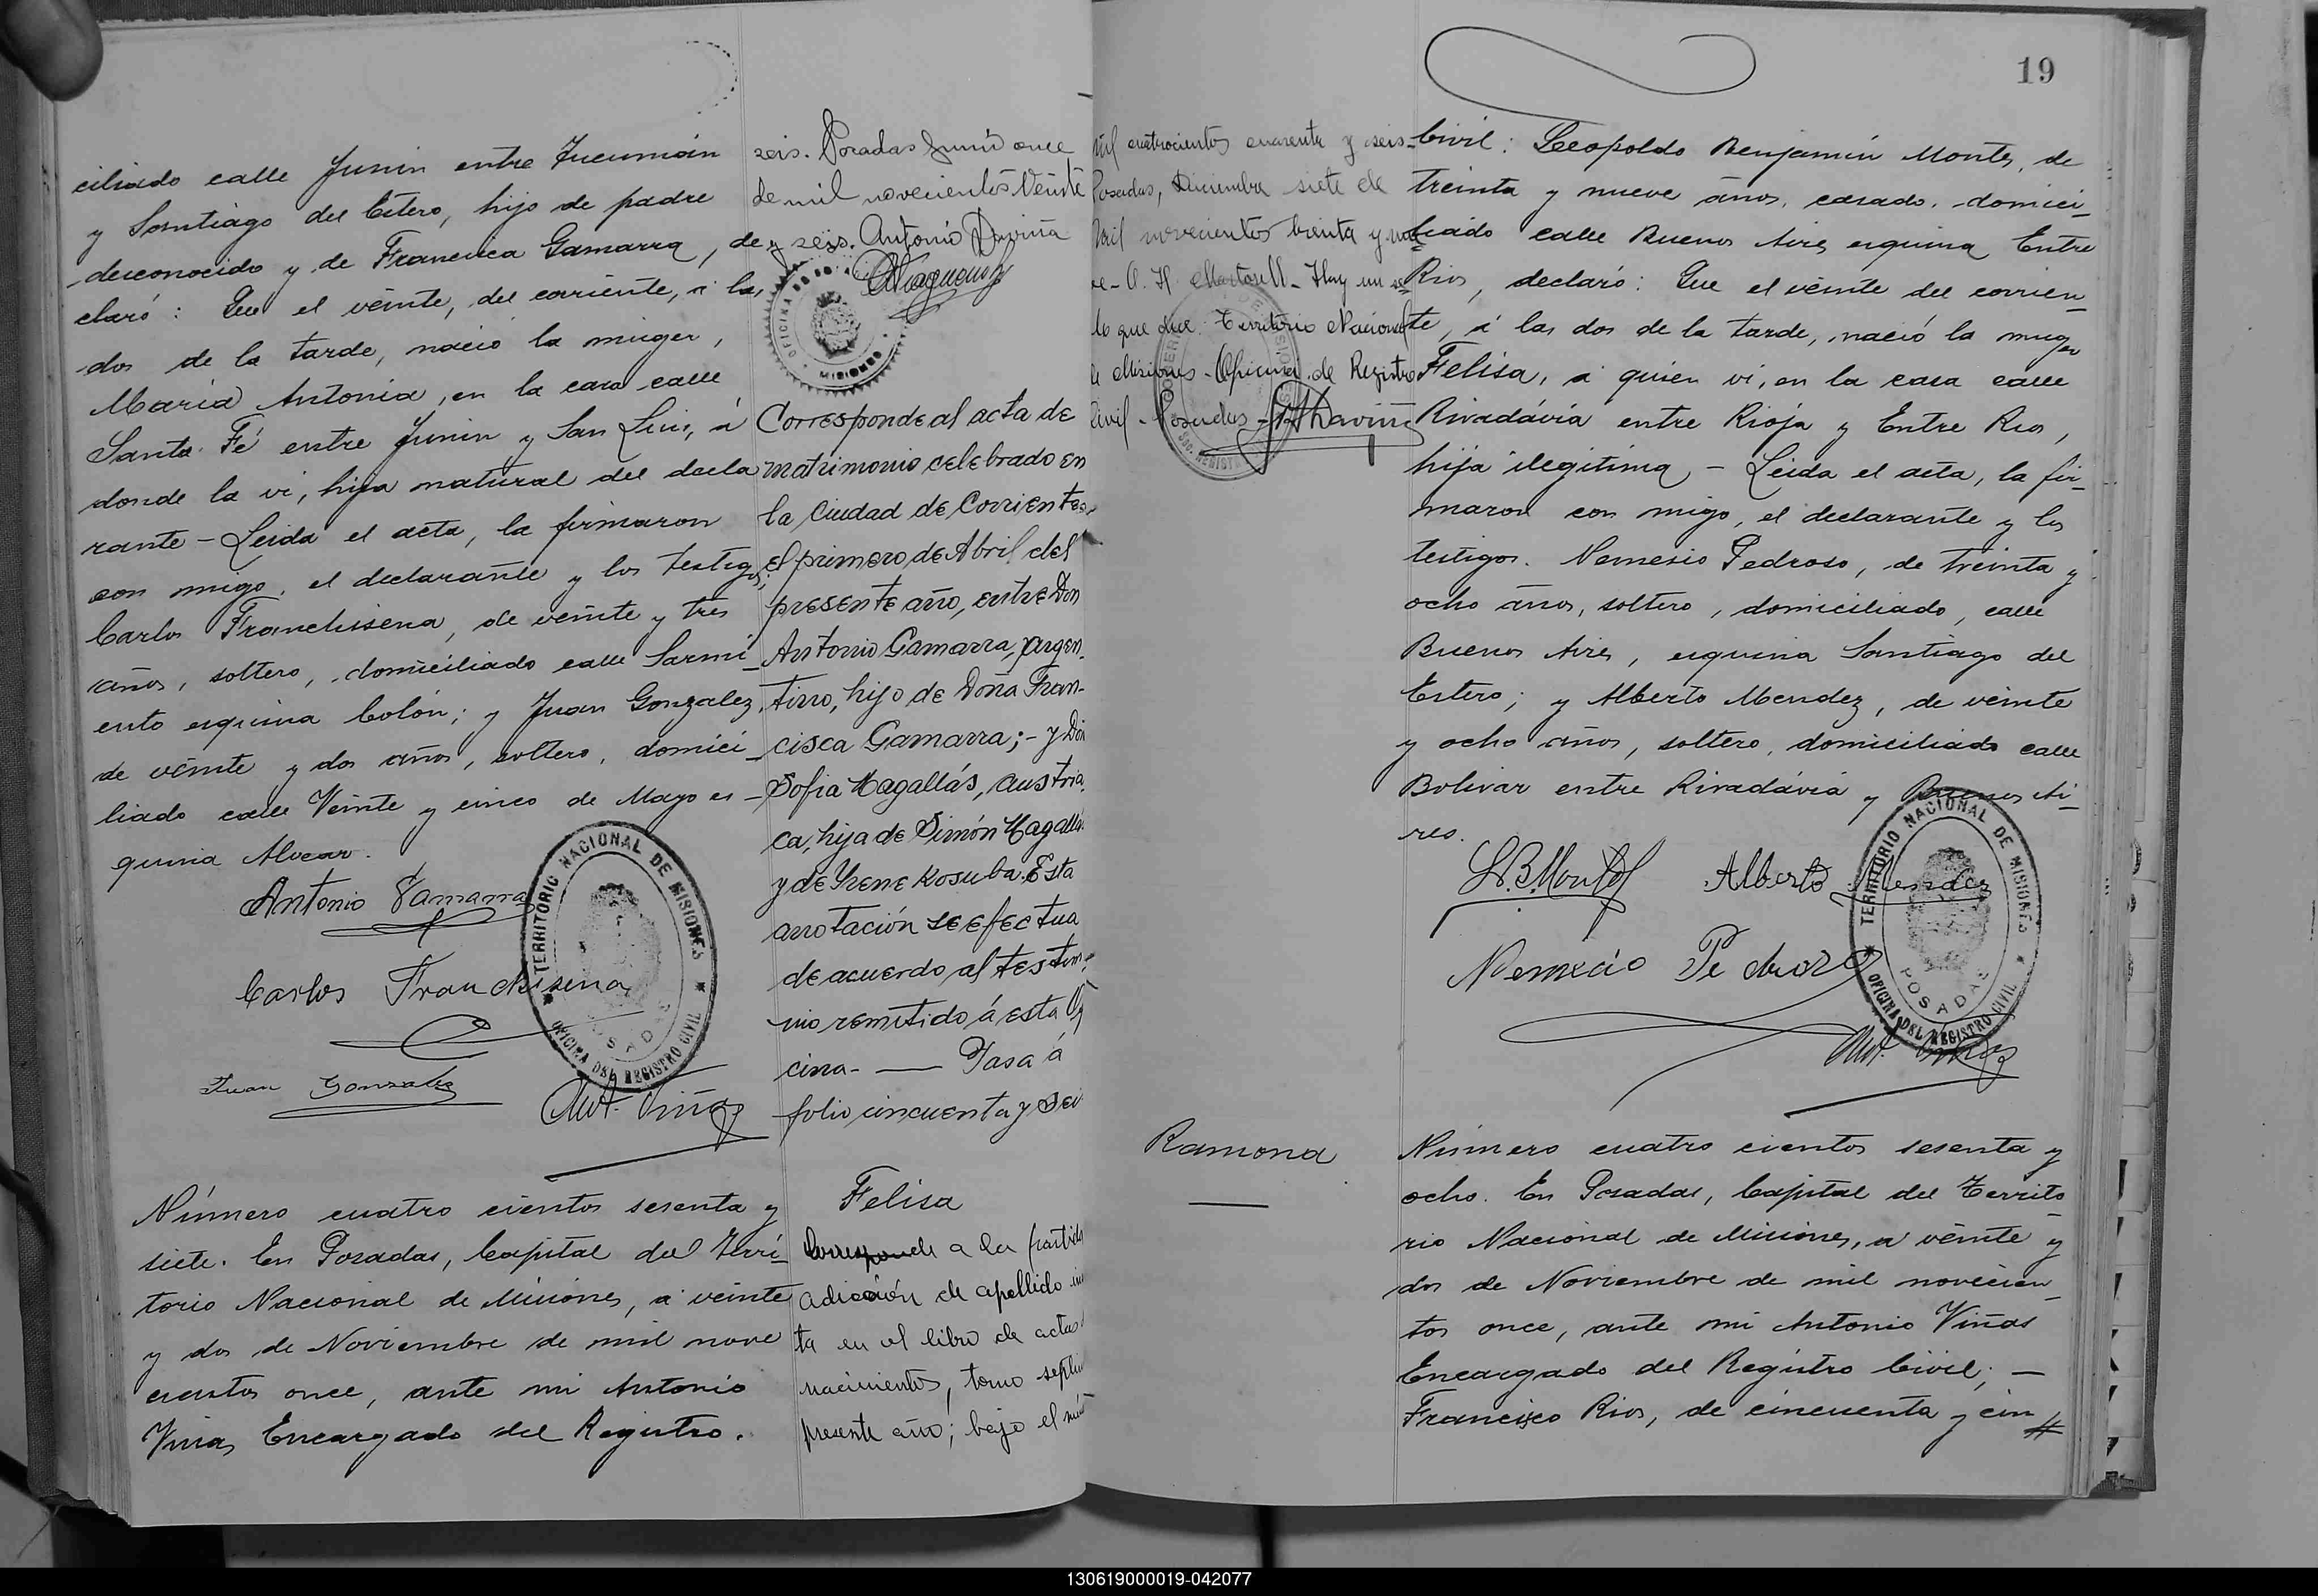 ciliado calle Junin entre Tucumán
y Santiago del Estero, hijo de padre
desconocido y de Francisca Gamarra, de
claró: Que el veinte, del corriente, á las
dos de la tarde, nació la muger,
Maria Antonia, en la casa calle
Santa Fé entre Junin y San Luis, á
donde la vi, hija natural del decla
rante – Leida el acta, la firmaron
con migo, el declarante y los testigos;
Carlos Franchisena, de veinte y tres
años, soltero, domiciliado calle Sarmi_
ento esquina Colón; y Juan Gonzalez,
de veinte y dos años, soltero, domici_
liado calle Veinte y cinco de Mayo es_
quina Alvear.
Antonio Gamarra
Carlos Franchisena
Juan Gonzalez
Ant. Viñas
TERRITORIO NACIONAL DE MISIONES
POSADAS
OFICINA DEL REGISTRO CIVIL
Número cuatro cientos sesenta y
siete. En Posadas, Capital del Terri_
torio Nacional de Misiones, á veinte
y dos de Noviembre de mil nove
cientos once, ante mi Antonio
Viñas Encargado del Registro.
seis. Posadas Junio once
de mil novecientos veinte
y seis. Antonio
MISIONES
Corresponde al acta de
matrimonio celebrado en
la Ciudad de Corrientes,
el primero de Abril del
presente año, entre Don
Antonio Gamarra, argen_
tino, hijo de Doña Fran-
cisca Gamarra; - y Doña
Sofia Magallás, austria
ca, hija de Simón Magallás
y de Yrene Kosuba. Esta
anotación se efectua
de acuerdo al testimo
nio remitido á esta Ofi
cina- — Pasa á
folio cincuenta y seis
Felisa
Corresponde a la partida
adición de apellido
ta en el libro de actas
nacimientos, tomo
presente año; bajo el
mil cuatrocientos cuarenta y seis_
Posadas, Diciembre siete de
mil novecientos treinta y nue
ve - A. H. Martorell - Hay un se
llo que dice: Territorio Nacional
de Misiones - Oficina de Registro
Civil - Posadas -
19
Civil: Leopoldo Benjamin Montes, de
treinta y nueve años, casado, domici_
liado calle Buenos Aires esquina Entre
Rios, declaró: Que el veinte del corrien_
te, á las dos de la tarde, nació la muger
Felisa, á quien vi, en la casa calle
Rivadávia entre Rioja y Entre Rios,
hija ilegitima – Leida el acta, la fir_
maron con migo, el declarante y los
testigos. Nemesio Pedroso, de treinta y
ocho años, soltero, domiciliado, calle
Buenos Aires, esquina Santiago del
Estero; y Alberto Mendez, de veinte
y ocho años, soltero, domiciliado calle
Bolivar entre Rivadávia y Buenos Ai_
res.
L. B. Montes
Alberto Mendez
Nemecio Pedrozo
Ant. Viñas
TERRITORIO NACIONAL DE MISIONES
POSADAS
OFICINA DEL REGISTRO CIVIL
Ramona
Número cuatro cientos sesenta y
ocho. En Posadas, Capital del Territo_
rio Nacional de Misiones, á veinte y
dos de Noviembre de mil novecien_
tos once, ante mi Antonio Viñas
Encargado del Registro Civil; —
Francisco Rios, de cincuenta y cin
130619000019-042077